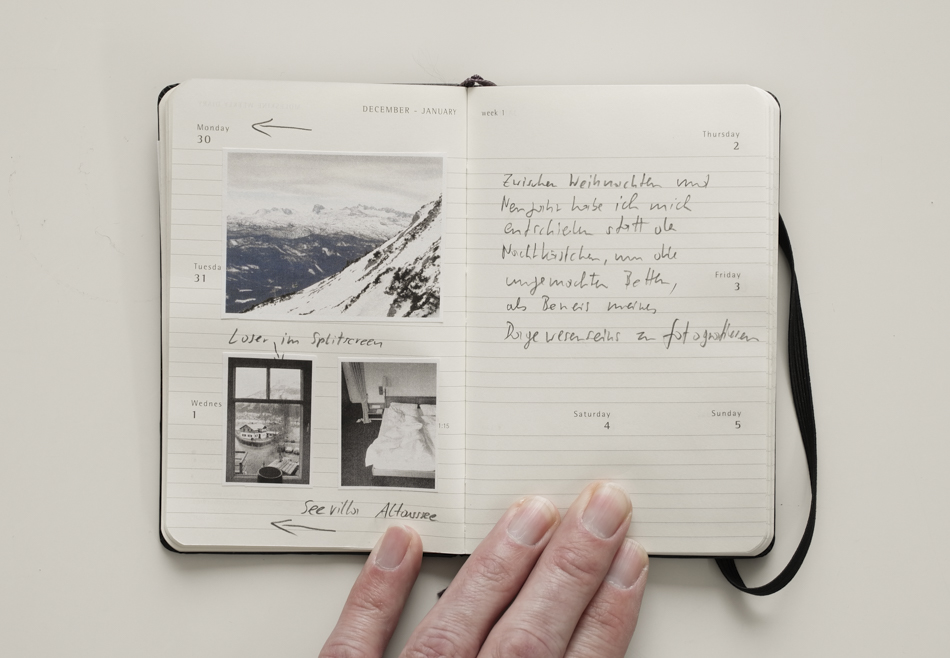 DECEMBER - JANUARY
Monday
30
Tuesda
31
Loser im Splitscreen
Wednes
1
Seevilla Altaussee
week 1
Thursday
2
Zwischen Weihnachten und
Neujahr habe ich mich
entschieden statt der
Nachtkästchen, nun die
ungemachten Betten,
als Beweis meines
Dagewesenseins zu fotografieren
Friday
3
Saturday
4
Sunday
5